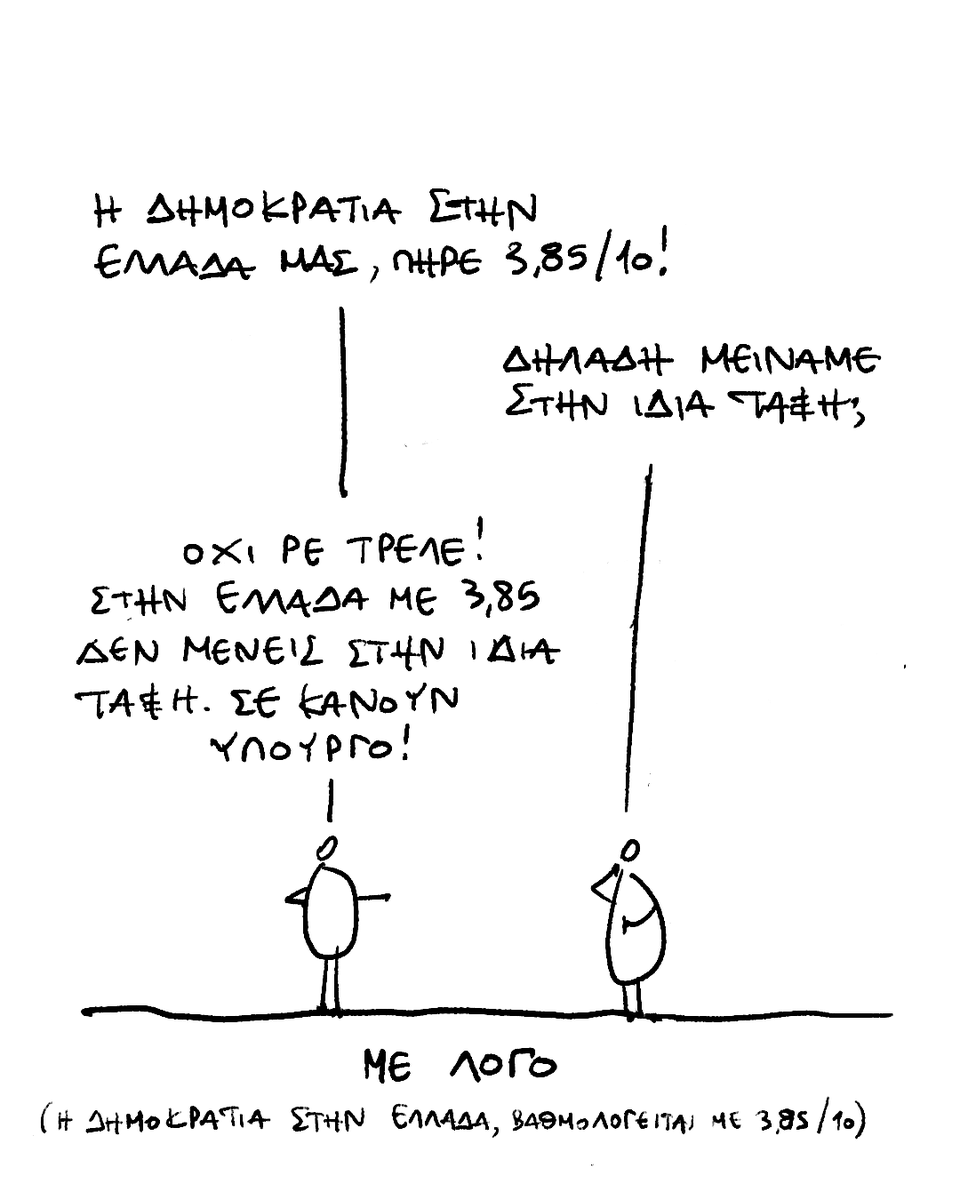 Η ΔΗΜΟΚΡΑΤΙΑ ΣΤΗΝ
ΕΛΛΑΔΑ ΜΑΣ, ΠΗΡΕ 3,85/10!
ΔΗΛΑΔΗ ΜΕΙΝΑΜΕ
ΣΤΗΝ ΙΔΙΑ ΤΑΞΗ;
ΟΧΙ ΡΕ ΤΡΕΛΕ!
ΣΤΗΝ ΕΛΛΑΔΑ ΜΕ 3,85
ΔΕΝ ΜΕΝΕΙΣ ΣΤΗΝ ΙΔΙΑ
ΤΑΞΗ. ΣΕ ΚΑΝΟΥΝ
ΥΠΟΥΡΓΟ!
ΜΕ ΛΟΓΟ
(Η ΔΗΜΟΚΡΑΤΙΑ ΣΤΗΝ ΕΛΛΑΔΑ, ΒΑΘΜΟΛΟΓΕΙΤΑΙ ΜΕ 3,85/10)